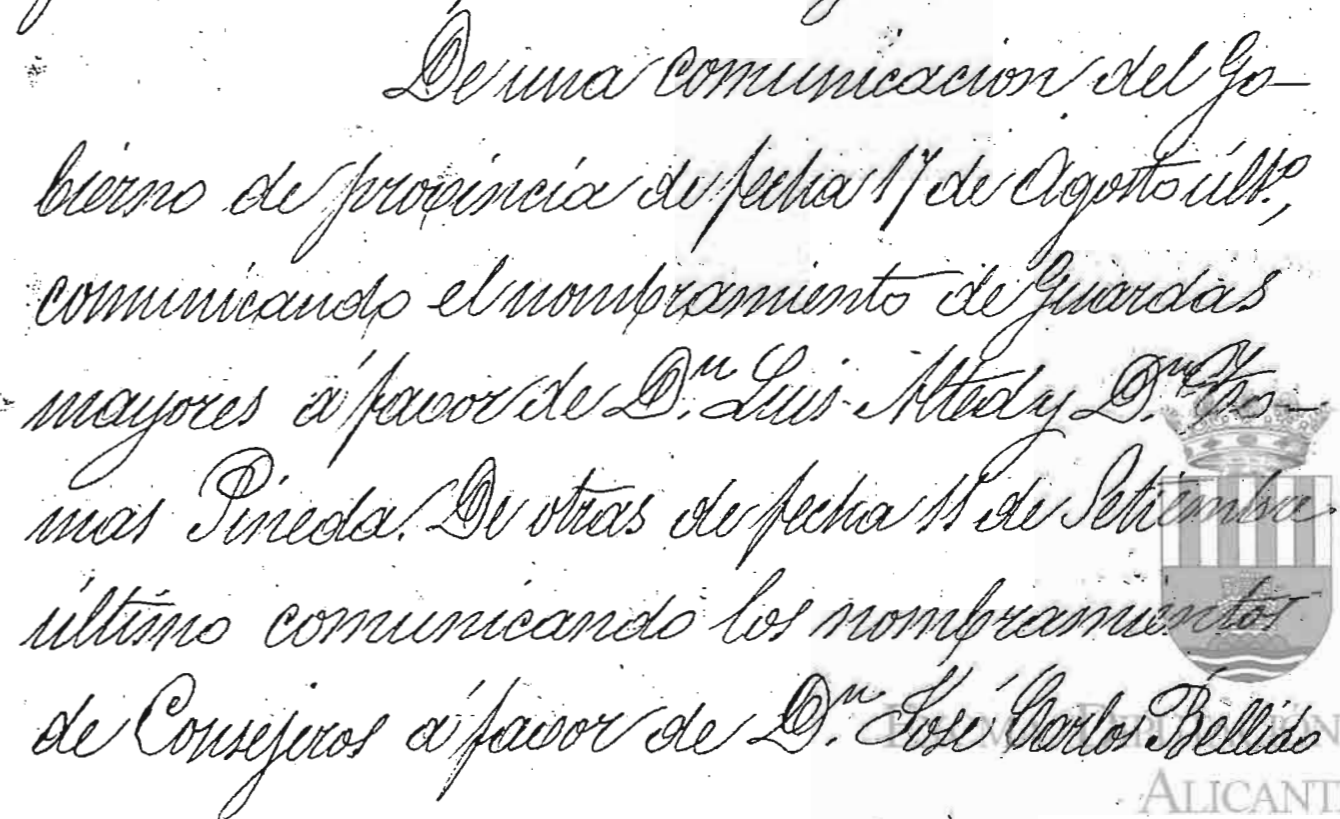 De una comunicacion del Go-
bierno de provincia de fecha 17 de Agosto últº,
comunicando el nombramiento de Guardas
mayores á favor de D.n Luis Altad y D.n To-
mas Pineda. De otras de fecha 11 de Setiembre
último comunicando los nombramientos
de Consejeros á favor de D.n José Carlos Bellido
ALICANT